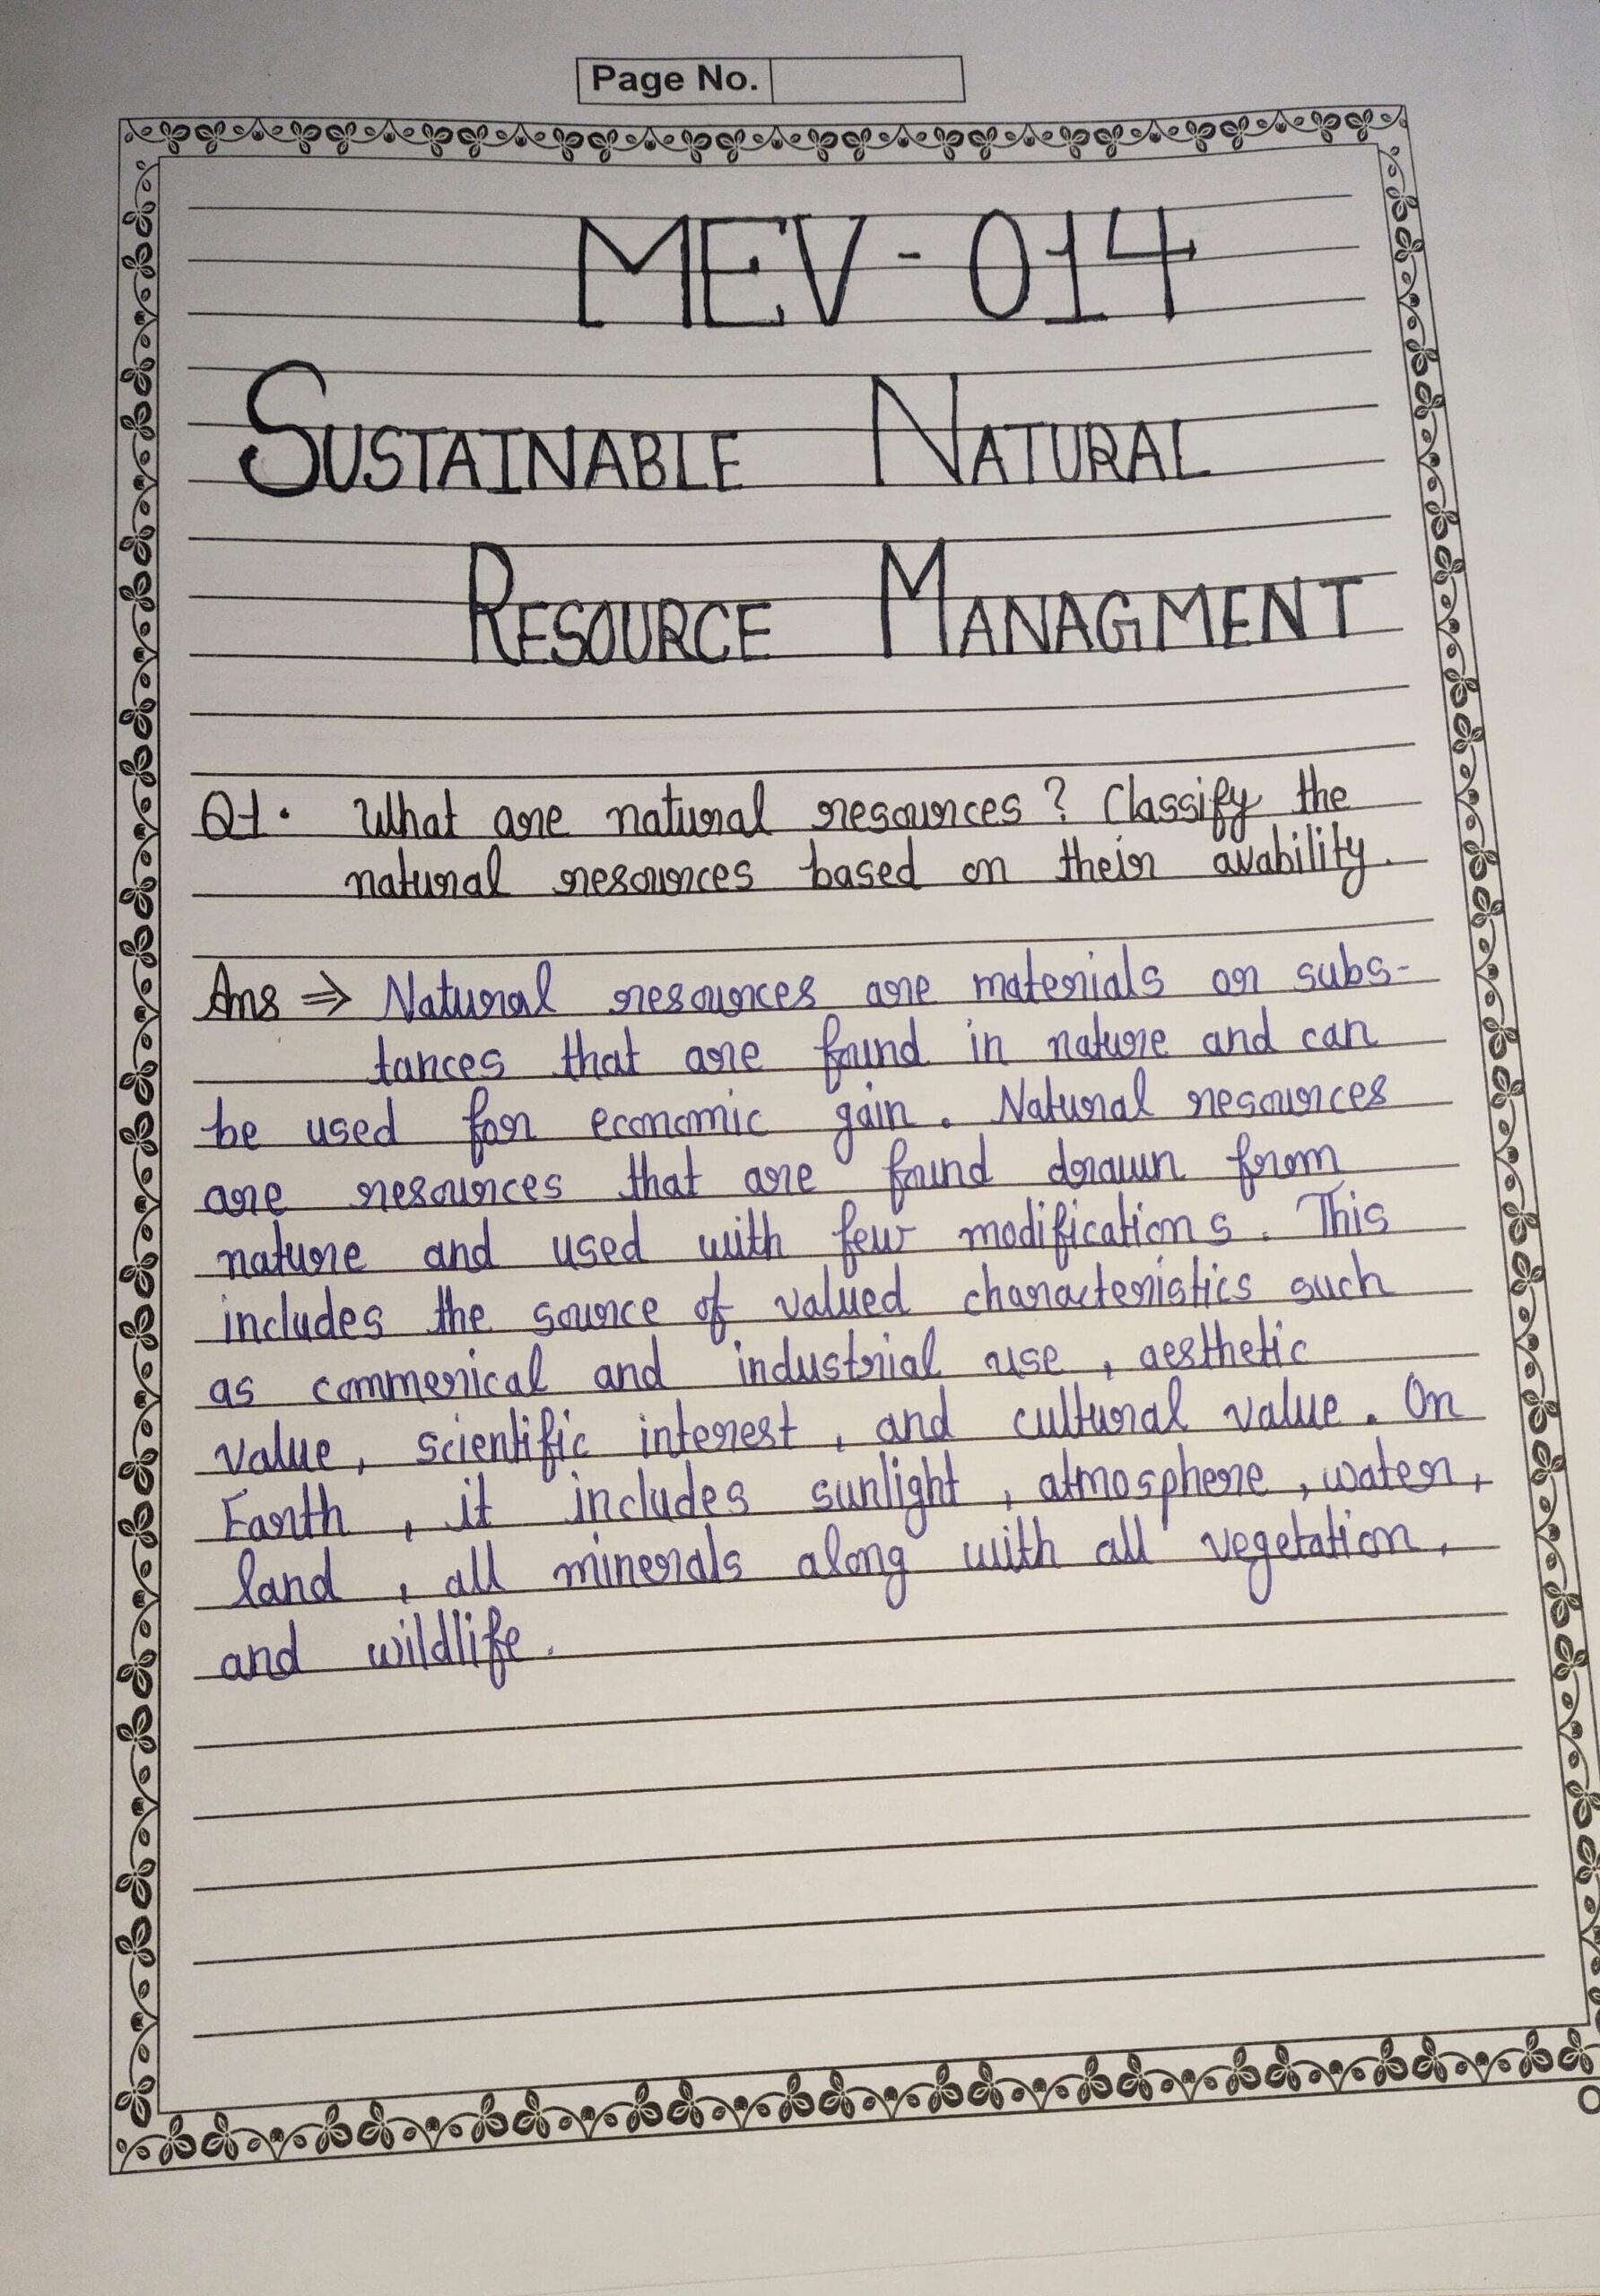 Page No.
MEV-014
SUSTAINABLE NATURAL
RESOURCE MANAGMENT
Q1. What are natural resources? Classify the
natural resources based on their avability.
Ans ⇒ Natural resources are materials or subs-
tances that are found in nature and can
be used for economic gain. Natural resources
are resources that are found drawn from
nature and used with few modifications. This
includes the source of valued characteristics such
as commerical and industrial use, aesthetic
value, scientific interest, and cultural value. On
Earth, it includes sunlight, atmosphere, water,
land, all minerals along with all vegetation,
and wildlife.